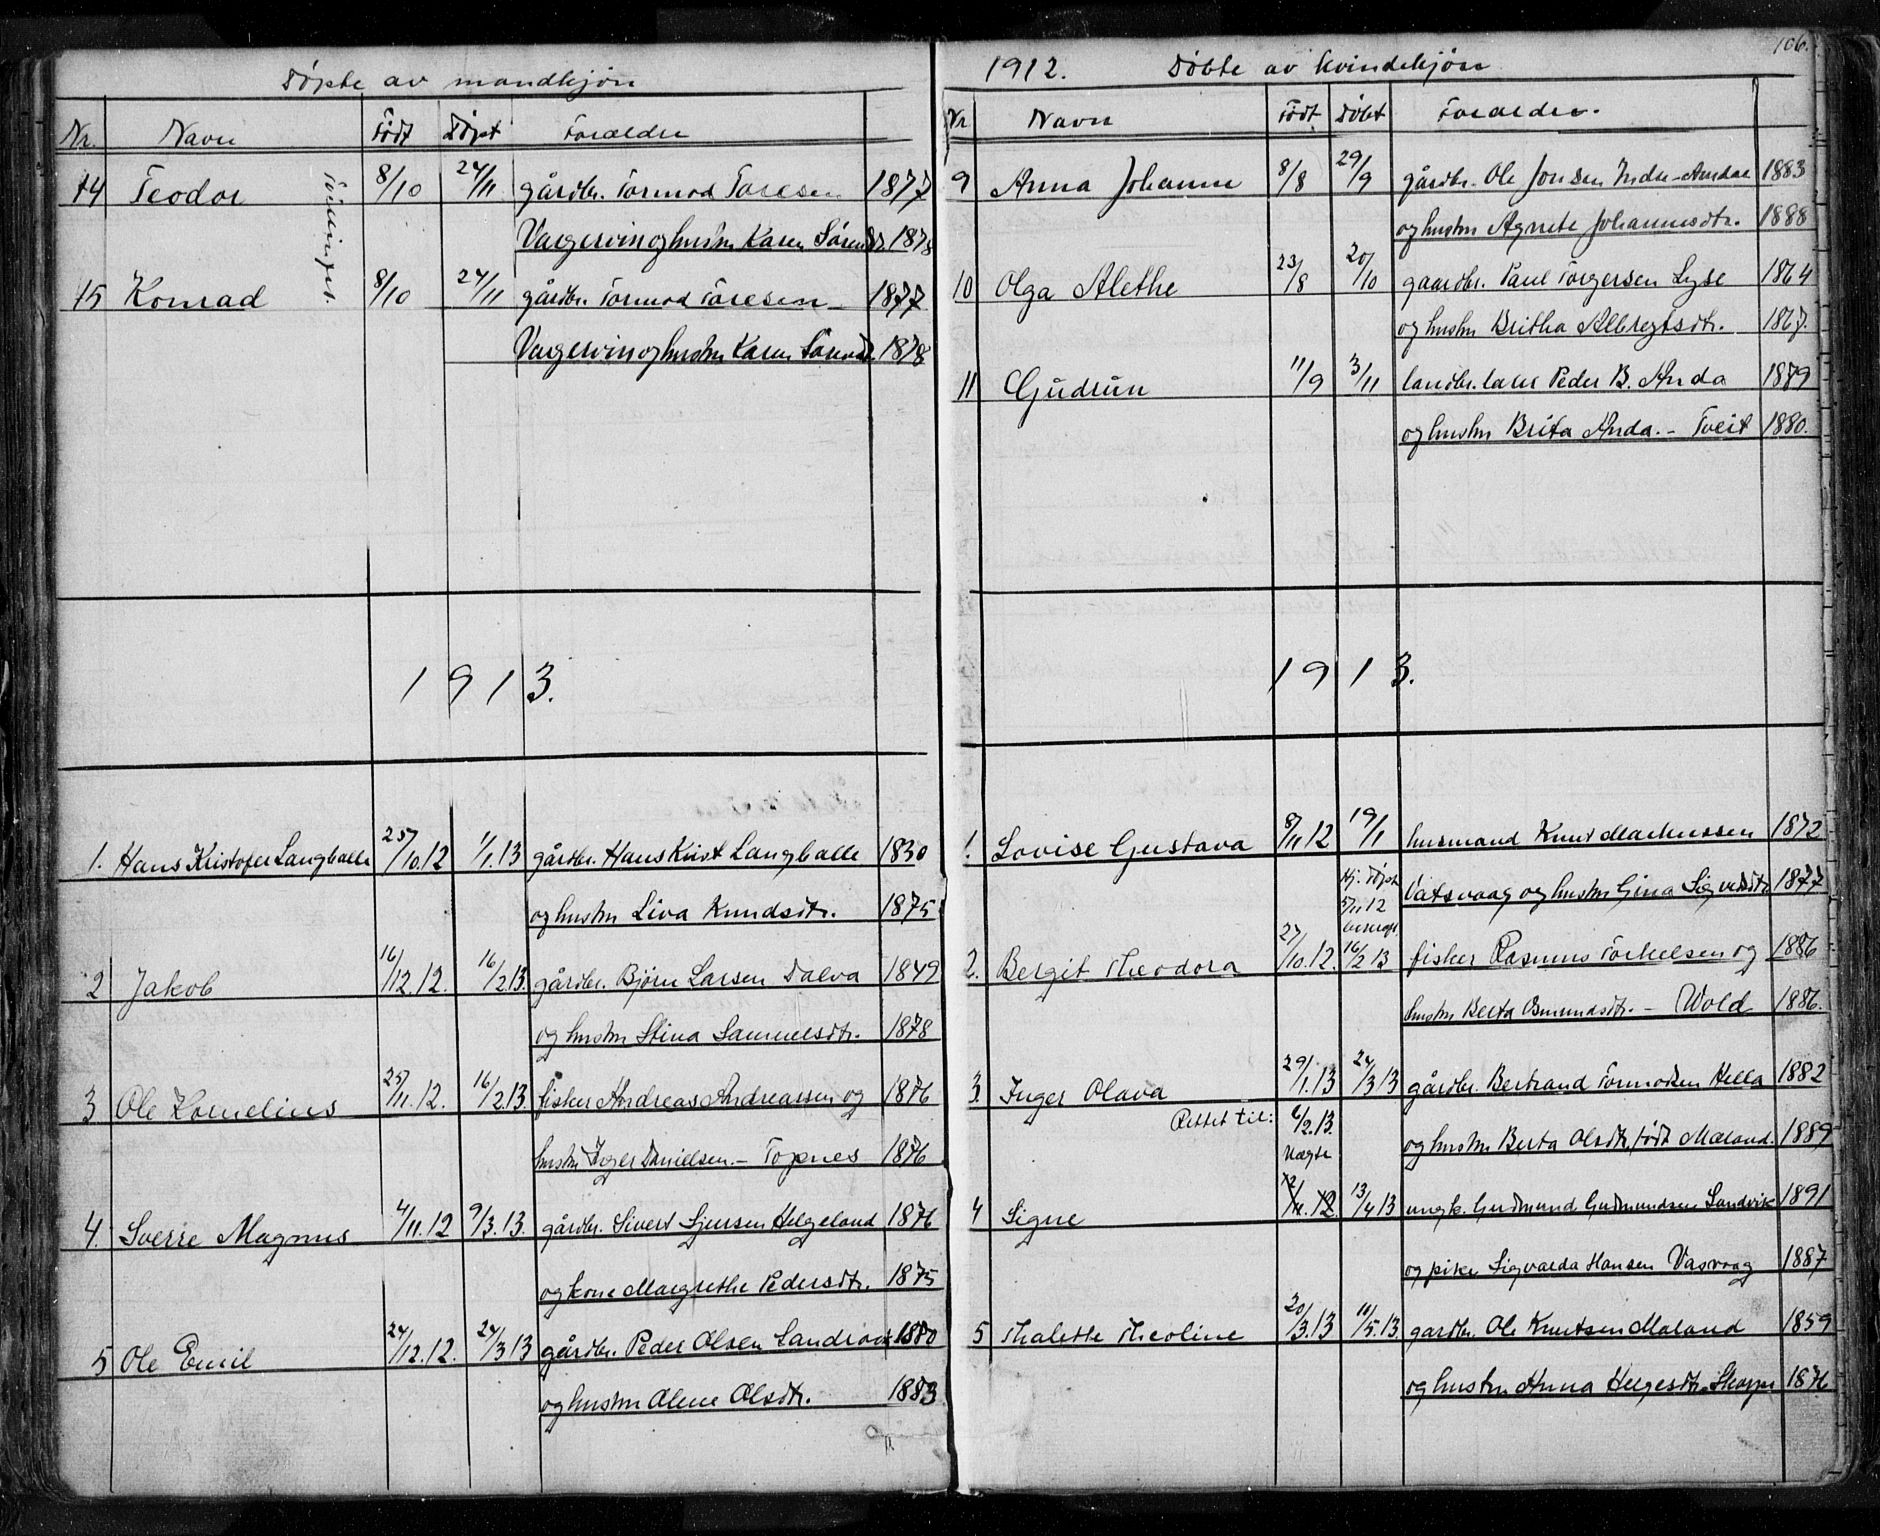 Døpte av mandkjøn
Nr. Navn Født Døpt Forældre
14 Teodor Tvillinger. 8/10 24/11 gårdbr. Tormod Toresen 1877
og hustru Karen Sørensdtr. 1878
15 Konrad 8/10 24/11 gårdbr. Tormod Toresen 1877
og hustru Karen 1878
1913.
1. Hans Kristofer Langballe 25/10.12 1/1.13 gårdbr. Hans Krist Langballe 1830
og hustru Liva Knudsdtr. 1875
2 Jakob 16/12.12. 16/2.13. gårdbr. Bjørn Larsen Dalva 1849
og hustru Stina Samuelsdtr. 1878
3 Ole Kornelius 25/11.12. 16/2.13. fisker Andreas Andreassen og 1876
hustru Inger Danielsen. - Topnes 1876
4. Sverre Magnus 4/11.12 9/3.13. gårdbr. Sivert Sjursen Helgeland 1876
og kone Margrethe Pedersdtr. 1875
5 Ole Emil 24/12.12. 24/3 13 gårdbr. Peder Olsen 1880
og hustru Alene Olsdtr. 1883
106.
1912. Døbte av kvindekjøn
Nr Navn Født Døbt Forældre.
9 Anna Johanne 8/8 29/9 gårdbr. Ole Jonsen Indre-Amdal 1883
og hustru Agnete Johannesdtr. 1888
10 Olga Alethe 23/8 20/10 gaardbr. Paul Torgersen Lyse 1864
og hustru Britha Albregtsdtr. 1867.
11 Gudrun 11/9 3/11 landbr. lærer Peder B. Anda 1879
og hustru Brita Anda. - Tveit 1880.
1913.
1. Lovise Gustava 8/11 12 19/1 husmand Knut Markussen 1872
Vatsvaag og hustru Gina Sigvartsdtr 1877
Hj. døpt
5/11 12
2. Bergit Theodora 27/10.12. 16/2 13 fisker Rasmus Torkelsen og 1886
hustru Berta Osmundsdtr. - Wold 1886.
3. Inger Olava 29/1.13 24/3 13 gårdbr. Bertrand Tormodsen Hella 1882
Rettet til: 6/2.13. og hustru Berta Olsdtr, født Mæland. 1889
4 Signe 2/11.12 13/4 13 ungk. Gudmund Gudmundsen Sandvik 1891
og pike Sigvarda Hansen Vasvaag 1887
5 Thalette Theoline 20/3.13 11/5.13. gardbr. Ole Knutsen Mæland 1859
og hustru Anna Helgesdtr. 1876